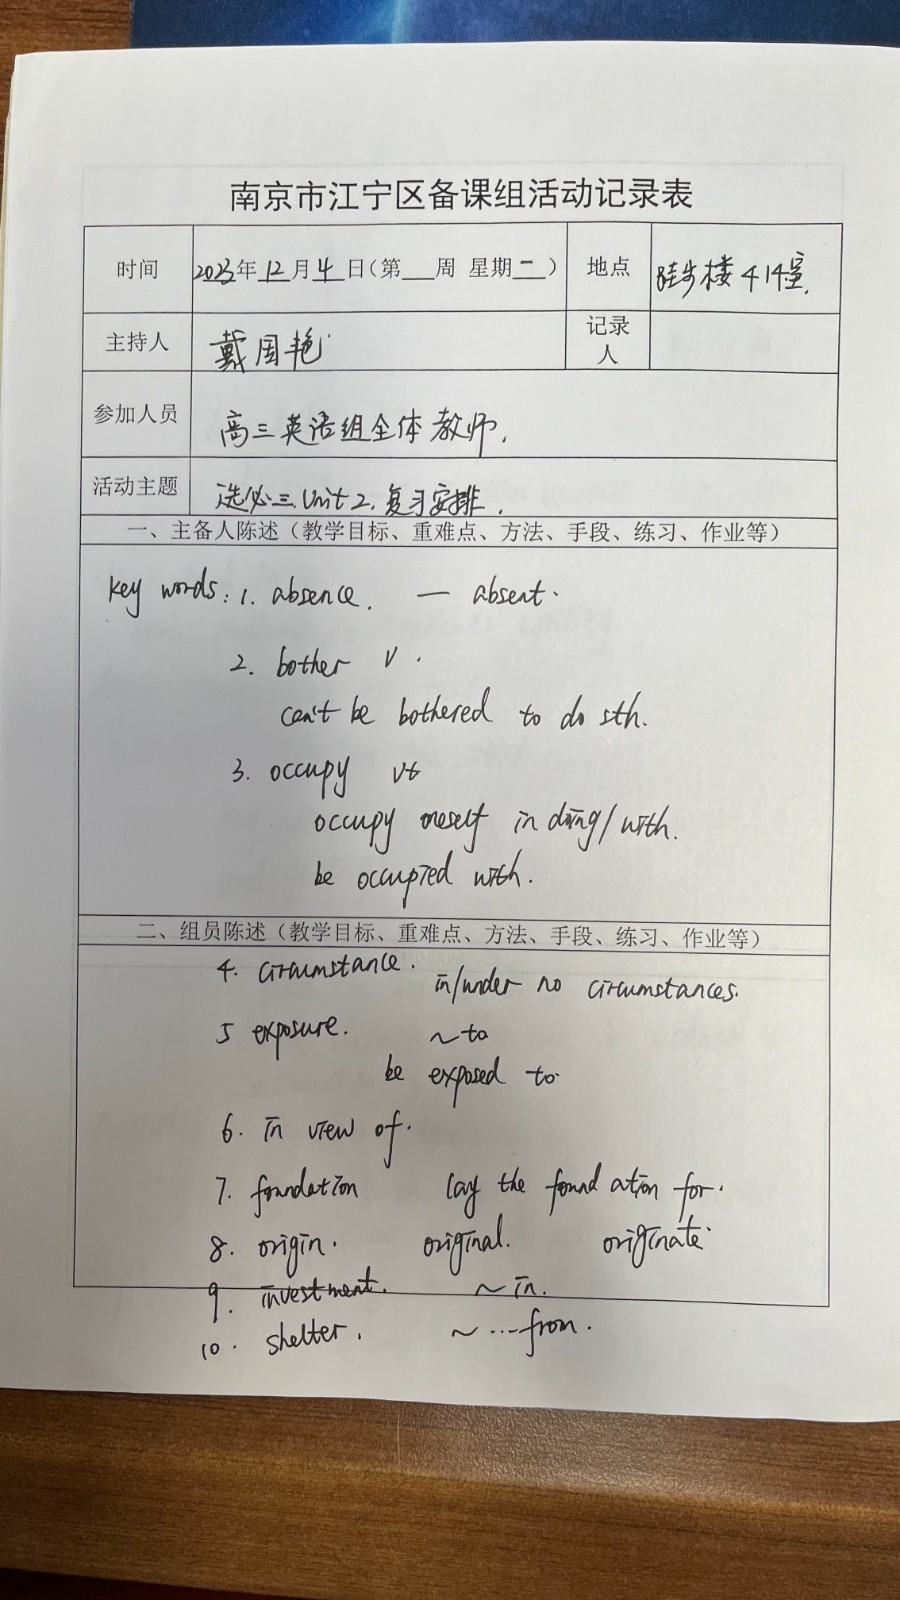 南京市江宁区备课组活动记录表
时间 2023年12月4日(第__周 星期二) 地点 跬步楼414室.
主持人 戴国艳 记录人
参加人员 高三英语组全体教师.
活动主题 选必三Unit 2.复习安排.
一、主备人陈述（教学目标、重难点、方法、手段、练习、作业等）
Key words: 1. absence. — absent.
2. bother v.
can't be bothered to do sth.
3. occupy vt
occupy oneself in doing/with.
be occupied with.
二、组员陈述（教学目标、重难点、方法、手段、练习、作业等）
4. circumstance. in/under no circumstances.
5 exposure. ~to
be exposed to.
6. in view of.
7. foundation lay the foundation for.
8. origin. original. originate.
9. investment. ~in.
10. shelter. ~...from.